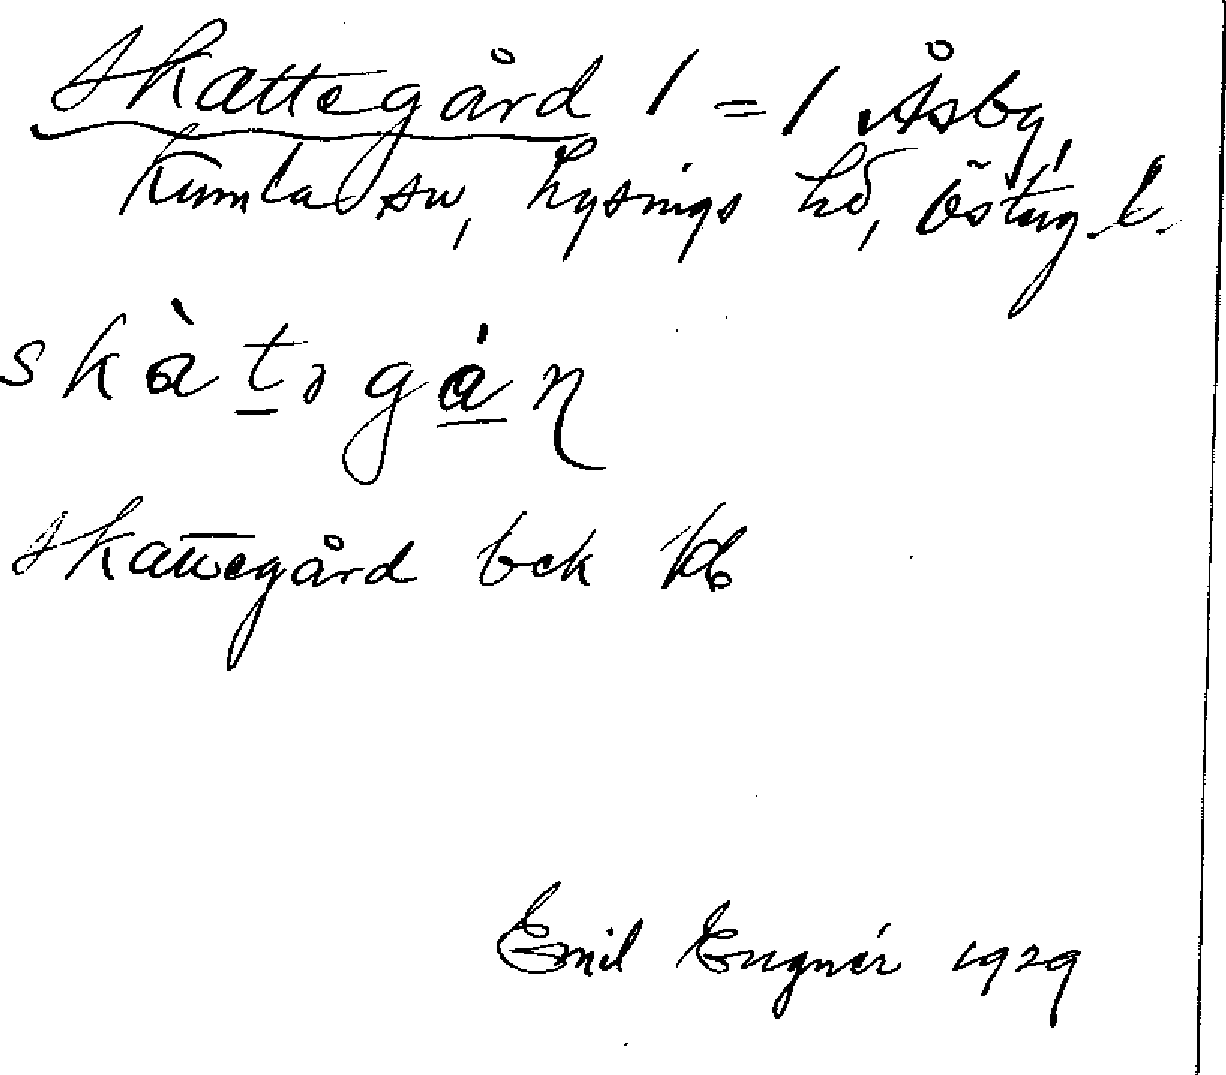 Skattegård 1 = 1 Åsby,
Kumla sn, Lysings hd, Östug. l.
skàtəgán
Skattegård bck
Emil Engnér 1929